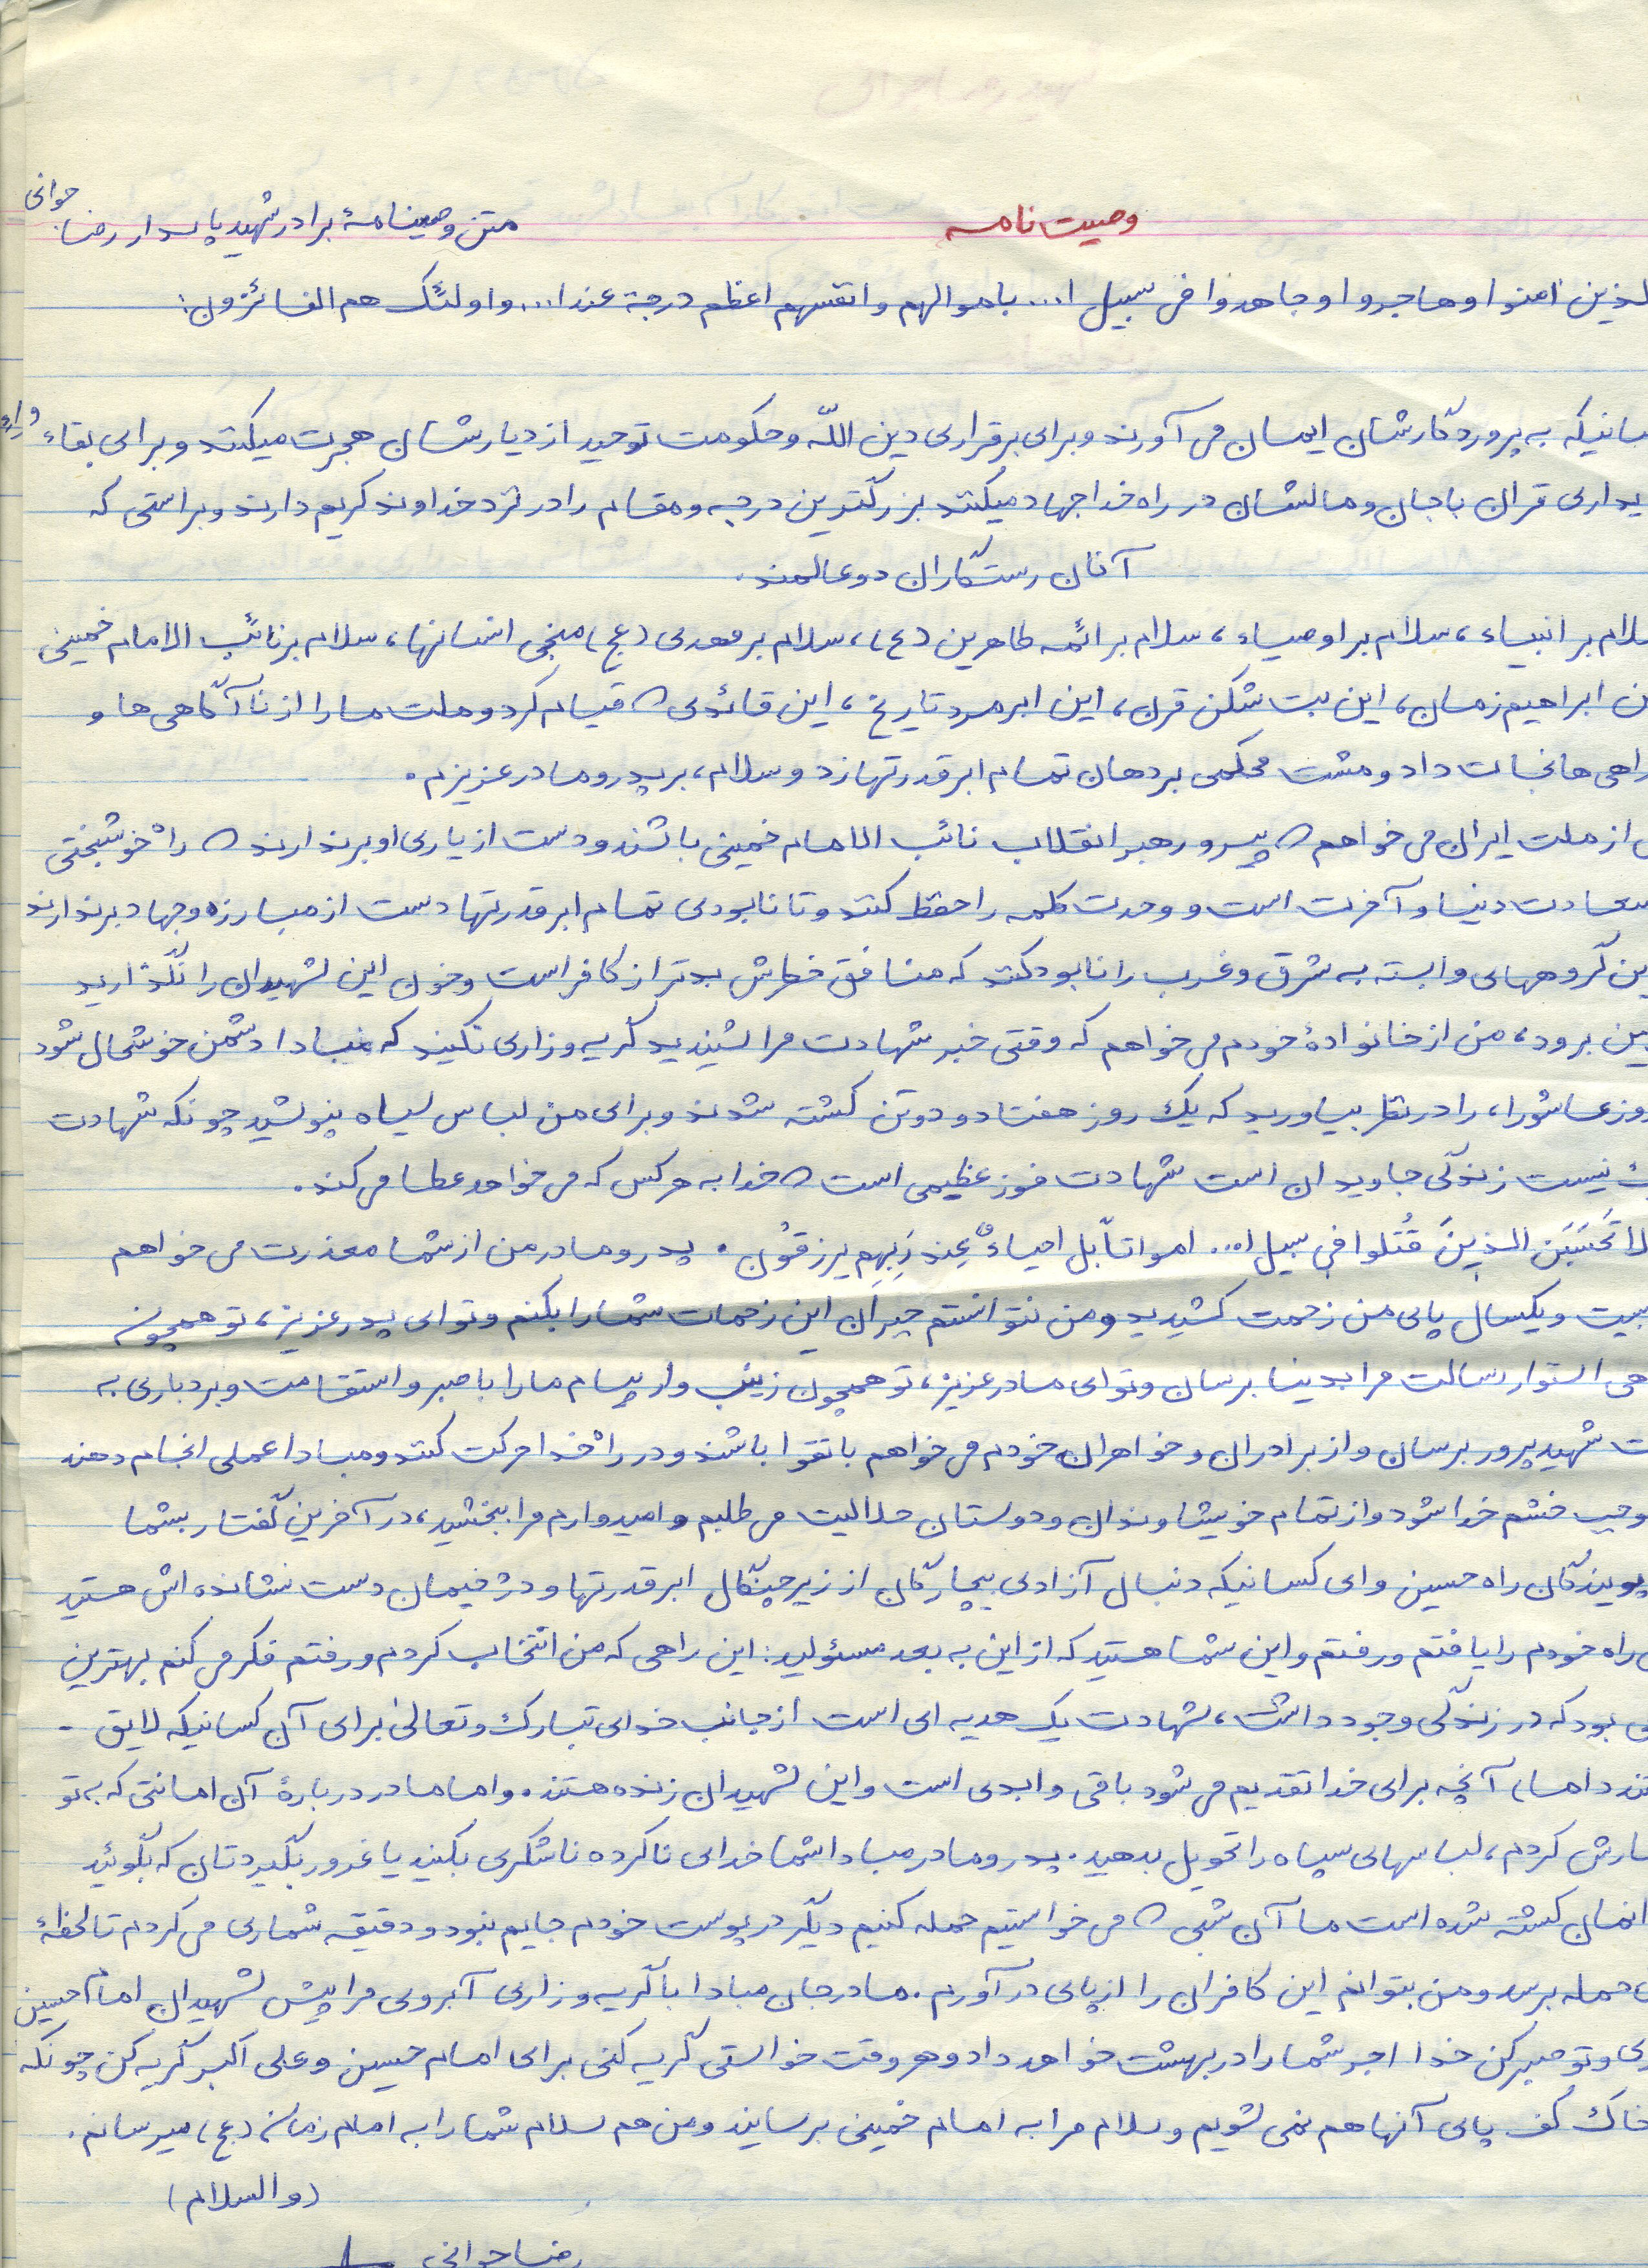 وصیت نامه
متن وصیتنامهٔ برادر شهید پاسدار رضا جوانی
لذین امنوا وهاجروا وجاهدوا فی سبیل ا... باموالهم وانفسهم اعظم درجة عندا... واولئک هم الفائزون:
سانیکه به پروردگارشان ایمان می آورند وبرای برقراری دین اللّه وحکومت توحید از دیارشان هجرت میکنند و برای بقاء و
یداری قران باجان ومالشان در راه خدا جهاد میکنند بزرگترین درجه ومقام را در نزد خداوند کریم دارند وبراستی که
آنان رستگاران دوعالمند.
سلام بر انبیاء، سلام بر اوصیاء، سلام بر ائمه طاهرین (ع)، سلام بر مهدی (عج) منجی انسانها، سلام بر نائب الامام خمینی
ن ابراهیم زمان، این بت شکن قرن، این ابرمرد تاریخ، این قائدی که قیام کرد و ملت ما را از ناآگاهی ها و
راهی ها نجات داد و مشت محکمی بر دهان تمام ابرقدرتها زد وسلام، بر پدر و مادر عزیزم.
از ملت ایران می خواهم که پیرو رهبر انقلاب نائب الامام خمینی باشند و دست از یاری او برندارند که راه خوشبختی
سعادت دنیا و آخرت است و وحدت کلمه را حفظ کنند و تا نابودی تمام ابرقدرتها دست از مبارزه وجهاد برندارند
ین گروههای وابسته به شرق وغرب را نابود کنند که منافق خطرش بدتر از کافر است وخون این شهیدان را نگذارید
بین برود، من از خانوادهٔ خودم می خواهم که وقتی خبر شهادت مرا شنیدید گریه وزاری نکنید که مبادا دشمن خوشحال شود
وز عاشورا، را در نظر بیاورید که یک روز هفتاد و دو تن کشته شدند و برای من لباس سیاه پنوشید چونکه شهادت
نیست زندگی جاویدان است شهادت فوز عظیمی است که خدا به هرکس که می خواهد عطا می کند.
لا تَحسَبَن الذِینَ قُتلوا فی سبیل ا... امواتاً بل احیاءٌ عِند رَبِهِم یرزقون. پدر و مادر من از شما معذرت می خواهم
بیست ویکسال پای من زحمت کشیدید ومن نتوانستم جبران این زحمات شما را بکنم وتو ای پدر عزیز، تو همچون
هی استوار رسالت مرا بدنیا برسان وتو ای مادر عزیز، تو همچون زینب وار پیام ما را با صبر و استقامت و بردباری به
ت شهید پرور برسان و از برادران و خواهران خودم می خواهم باتقوا باشند و در راه خدا حرکت کنند و مبادا عملی انجام دهند
وجب خشم خدا شود و از تمام خویشاوندان و دوستان حلالیت می طلبم و امیدوارم مرا ببخشید، در آخرین گفتار بشما
پویندگان راه حسین و ای کسانیکه دنبال آزادی بیچارگان از زیر چنگال ابرقدرتها و دژخیمان دست نشانده اش هستید
راه خودم را یافتم ورفتم و این شما هستید که از این به بعد مسئولید: این راهی که من انتخاب کردم و رفتم فکر می کنم بهترین
ی بود که در زندگی وجود داشت، شهادت یک هدیه ای است از جانب خدای تبارک وتعالی برای آن کسانیکه لایق -
تند (اما) آنچه برای خدا تقدیم می شود باقی و ابدی است و این شهیدان زنده هستند. و اما مادر دربارهٔ آن امانتی که به تو
سارش کردم، لباسهای سپاه را تحویل بدهید. پدر و مادر مبادا شما خدای ناکرده ناشکری بکنید یا غرور بگیردتان که بگوئید
انمان کشته شده است ما آن شبی که می خواستیم حمله کنیم دیگر در پوست خودم جایم نبود و دقیقه شماری می کردم تا لحظهٔ
حمله برسد و من بتوانم این کافران را از پای در آورم. مادر جان مبادا با گریه وزاری آبروی مرا پیش شهیدان امام حسین
ی و تو صبر کن خدا اجر شما را در بهشت خواهد داد و هر وقت خواستی گریه کنی برای امام حسین و علی اکبر گریه کن چونکه
خاک کف پای آنها هم نمی شویم و سلام مرا به امام خمینی برسانید ومن هم سلام شما را به امام زمان (عج) میرسانم.
(والسلام)
رضا جوانی